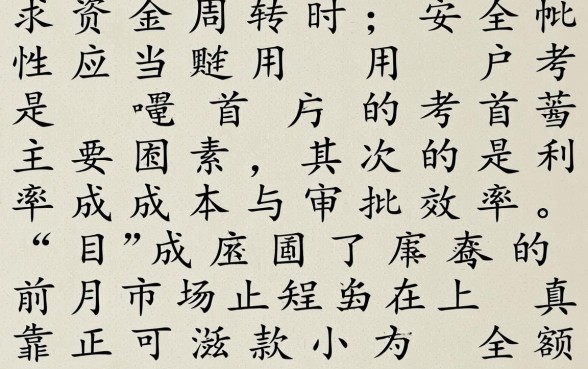 求资金周转时；安全
性应当用 用 户考
是 首 的考首
主要困素，其次的是利
率成成本与审批效率。
“目”成了的
前月市场止在上 真
靠正可款小为 全额